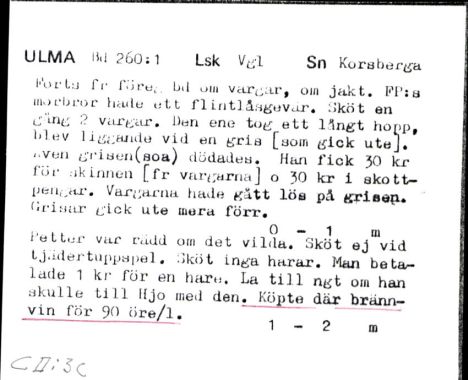 ULMA Bd 260:1 Lsk Vgl Sn Korsberga
Forts fr föreg bd om vargar, om jakt. FP:s
morbror hade ett flintlåsgevär. Sköt en
gång 2 vargar. Den ene tog ett långt hopp,
blev liggande vid en gris [som gick ute].
även grisen(soa) dödades. Han fick 30 kr
för skinnen [fr vargarna] o 30 kr i skott-
pengar. Vargarna hade gått lös på grisen.
Grisar gick ute mera förr.
0 - 1 m
Petter var rädd om det vilda. Sköt ej vid
tjädertuppspel. Sköt inga harar. Man beta-
lade 1 kr för en hare. La till ngt om han
skulle till Hjo med den. Köpte där bränn-
vin för 90 öre/l.
1 - 2 m
C II:3c